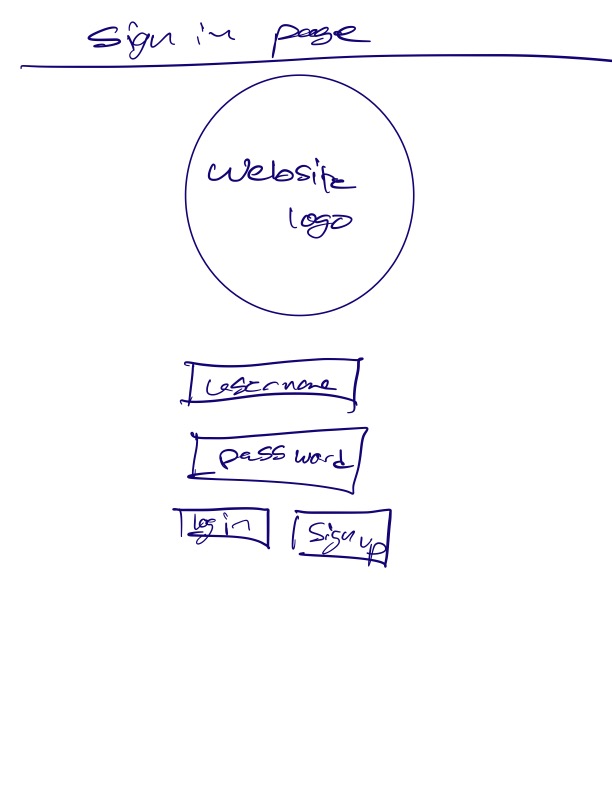 Sign in page
Website
logo
username
password
log in
Sign up